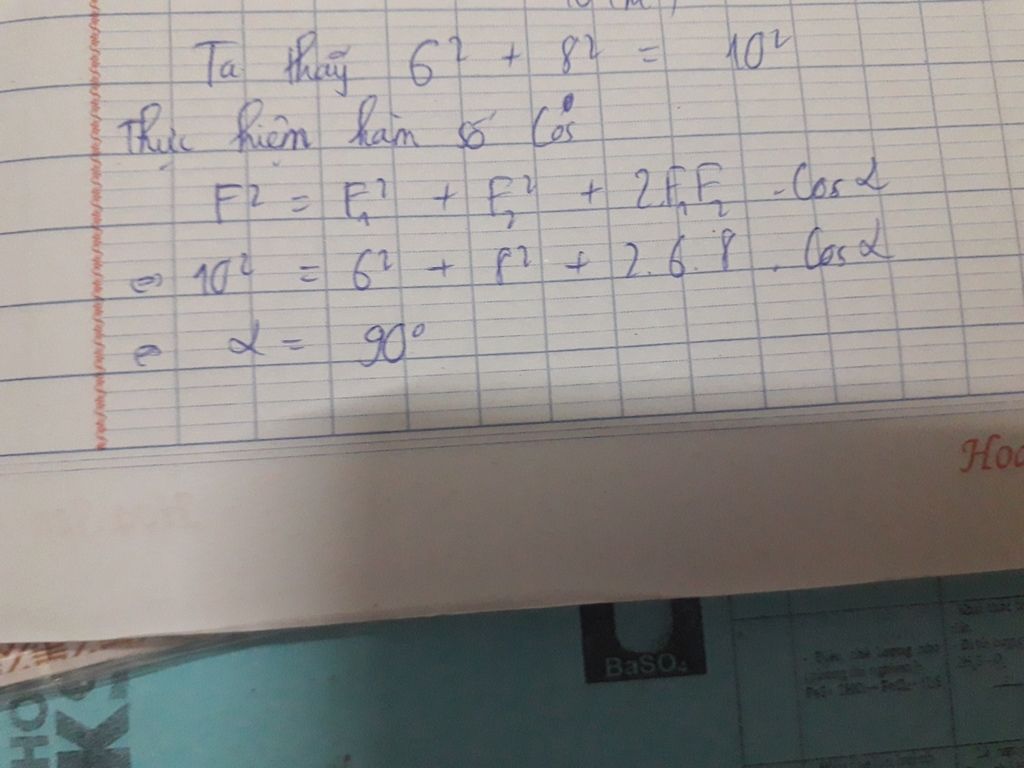 Ta thấy 6² + 8² = 10²
Thực hiện hàm số Cos
F² = F₁² + F₂² + 2F₁F₂ . Cos α
⇔ 10² = 6² + 8² + 2.6.8 . Cos α
⇔ α = 90°
Hoc
BaSO₄
HO
K